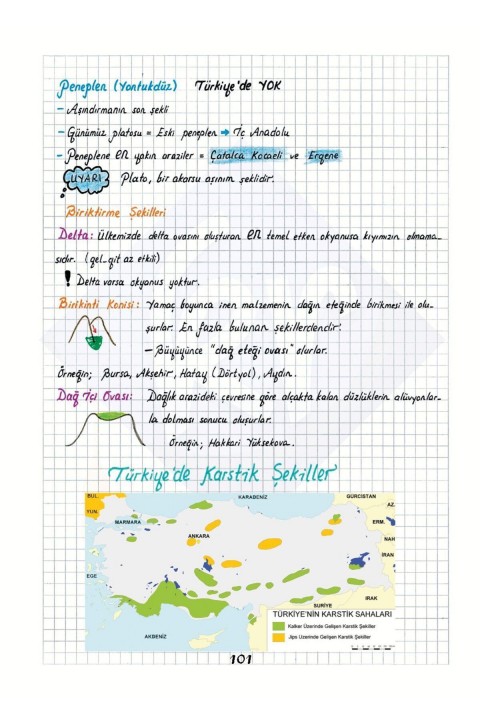 Peneplen (Yontukdüz) Türkiye'de YOK
- Aşındırmanın son şekli
- Günümüz platosu = Eski peneplen → İç Anadolu
- Peneplene en yakın araziler = Çatalca Kocaeli ve Ergene
UYARI Plato, bir akarsu aşınım şeklidir.
Biriktirme Şekilleri
Delta: Ülkemizde delta ovasını oluşturan en temel etken okyanusa kıyımızın olmama-
sıdır. (gel-git az etkili)
! Delta varsa okyanus yoktur.
Birikinti Konisi: Yamaç boyunca inen malzemenin dağın eteğinde birikmesi ile olu-
şurlar. En fazla bulunan şekillerdendir!
- Büyüyünce "dağ eteği ovası" olurlar.
Örneğin; Bursa, Akşehir, Hatay (Dörtyol), Aydın.
Dağ İçi Ovası: Dağlık arazideki çevresine göre alçakta kalan düzlüklerin alüvyonlar-
la dolması sonucu oluşurlar.
Örneğin; Hakkari Yüksekova.
Türkiye'de Karstik Şekiller
BUL. KARADENİZ GÜRCİSTAN
YUN. AZ.
MARMARA ERM.
ANKARA NAH
İRAN
EGE
IRAK
SURİYE
AKDENİZ
TÜRKİYE'NİN KARSTİK SAHALARI
Kalker Üzerinde Gelişen Karstik Şekiller
Jips Üzerinde Gelişen Karstik Şekiller
101